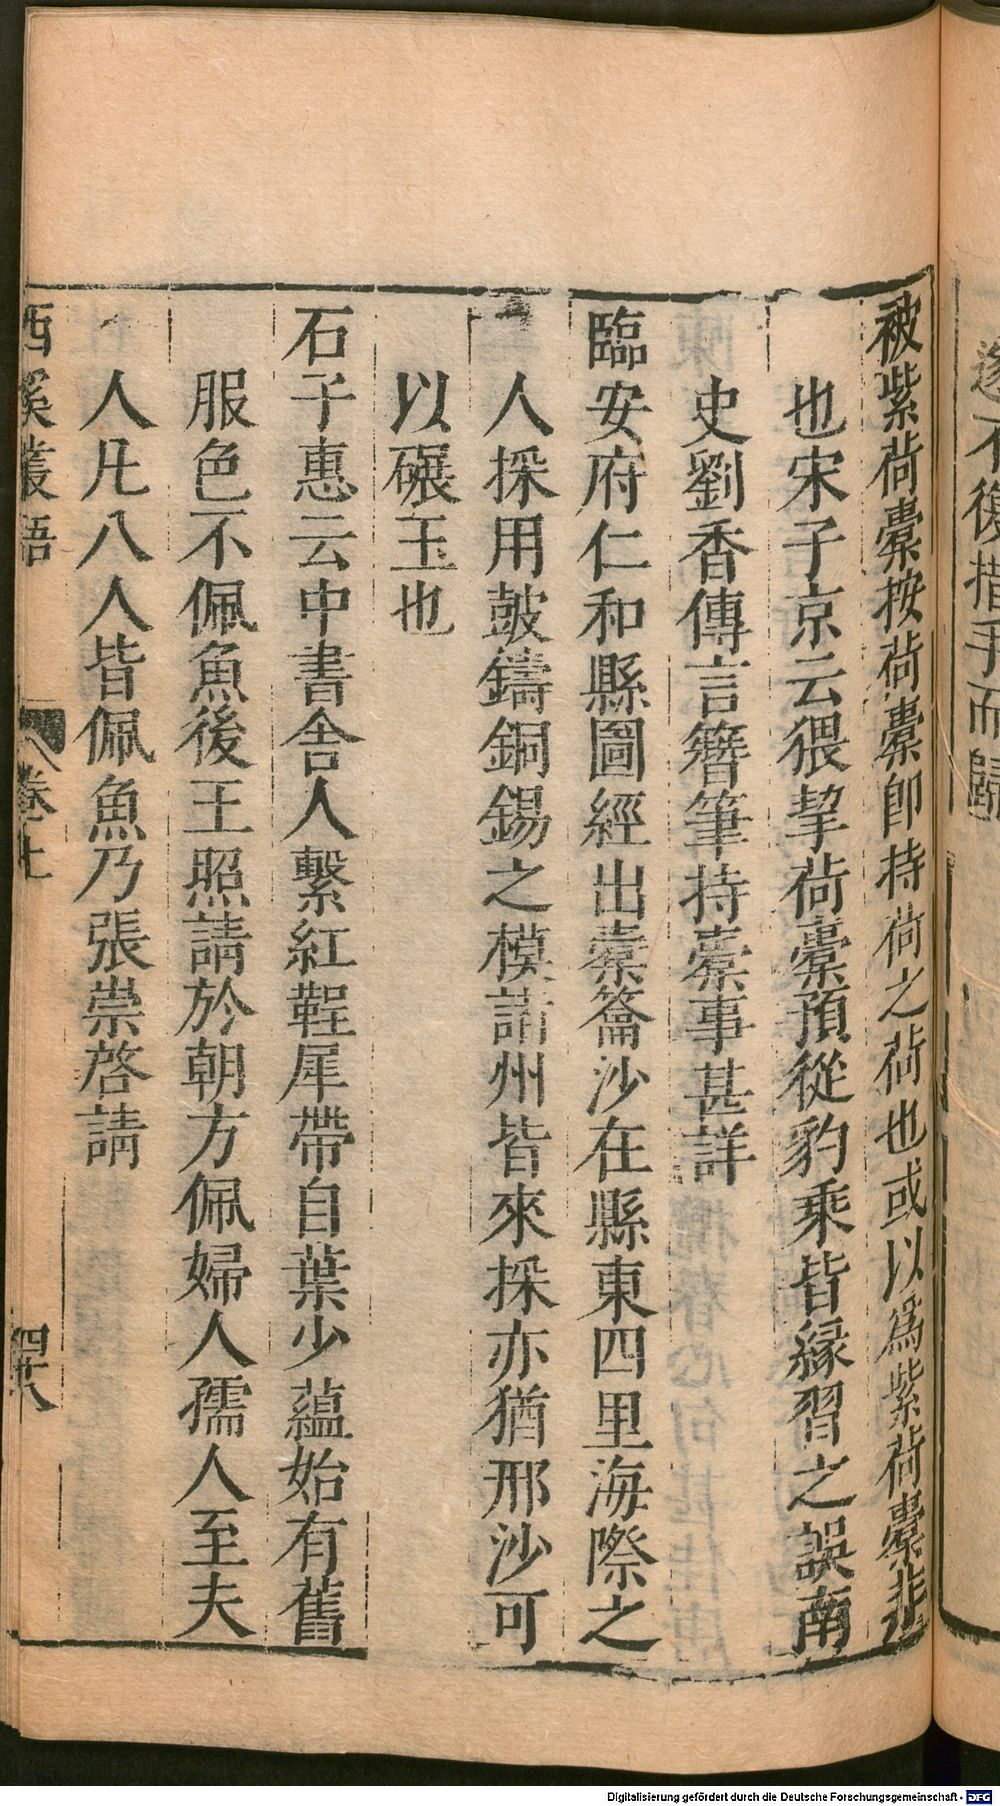 遂不復措手而歸
被紫荷橐按荷橐即持荷之荷也或以爲紫荷橐非
也宋子京云猥挈荷橐預從豹乘皆緣習之誤南
史劉香傳言簪筆持橐事甚詳
臨安府仁和縣圖經出橐籥沙在縣東四里海際之
人採用鼓鑄銅錫之模諸州皆來採亦猶邢沙可
以碾玉也
石子惠云中書舍人繫紅鞓犀帶自葉少蘊始有舊
服色不佩魚後王照請於朝方佩婦人孺人至夫
人凡八人皆佩魚乃張崇啓請
西溪叢語 卷上 四十八
Digitalisierung gefördert durch die Deutsche Forschungsgemeinschaft - DFG